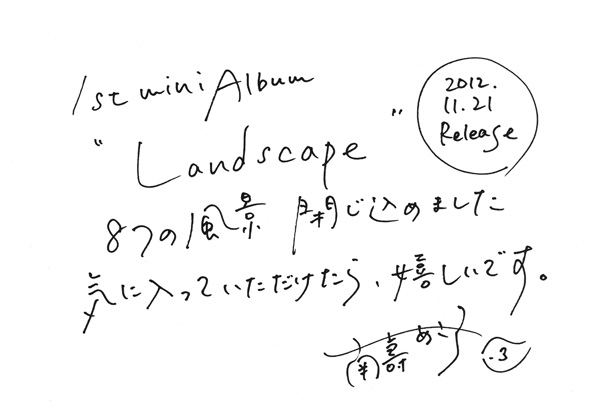 1st mini Album
"Landscape"
2012.
11.21
Release
8つの風景 閉じ込めました
気に入っていただけたら、嬉しいです。
南壽あさ子